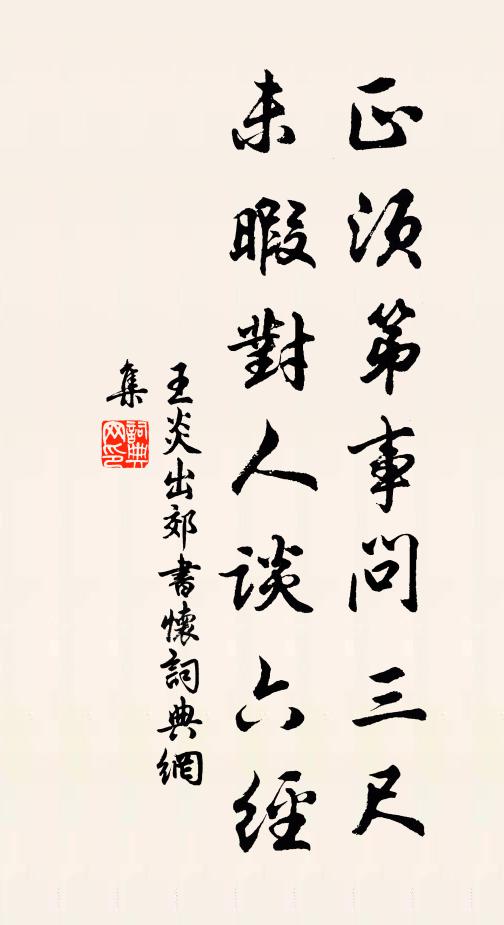 正須第事問三尺
未暇對人談六經
王炎出郊書懷詞典網
集
詞典
网印